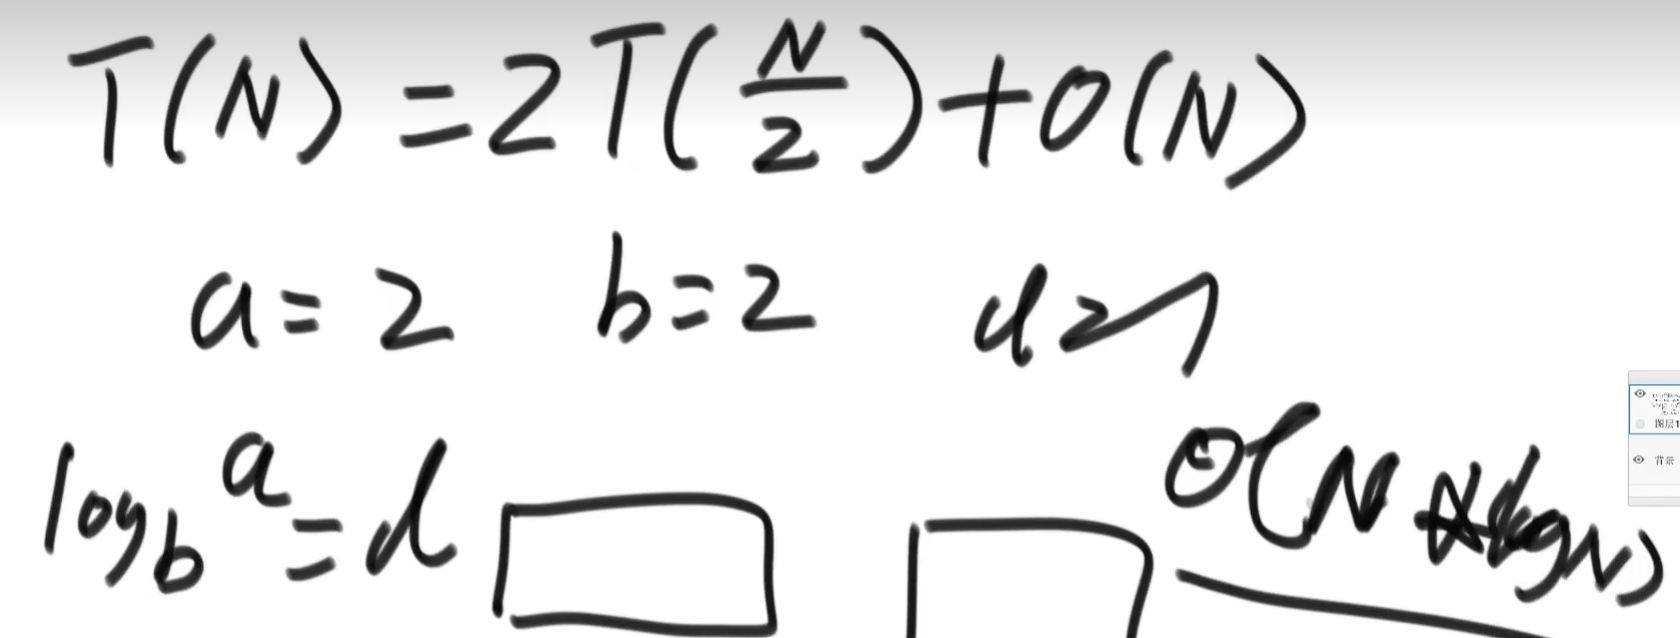 T(N) = 2T(N/2) + O(N)
a = 2 b = 2 d = 1
log_b a = d
O(N * logN)
图层1
背景